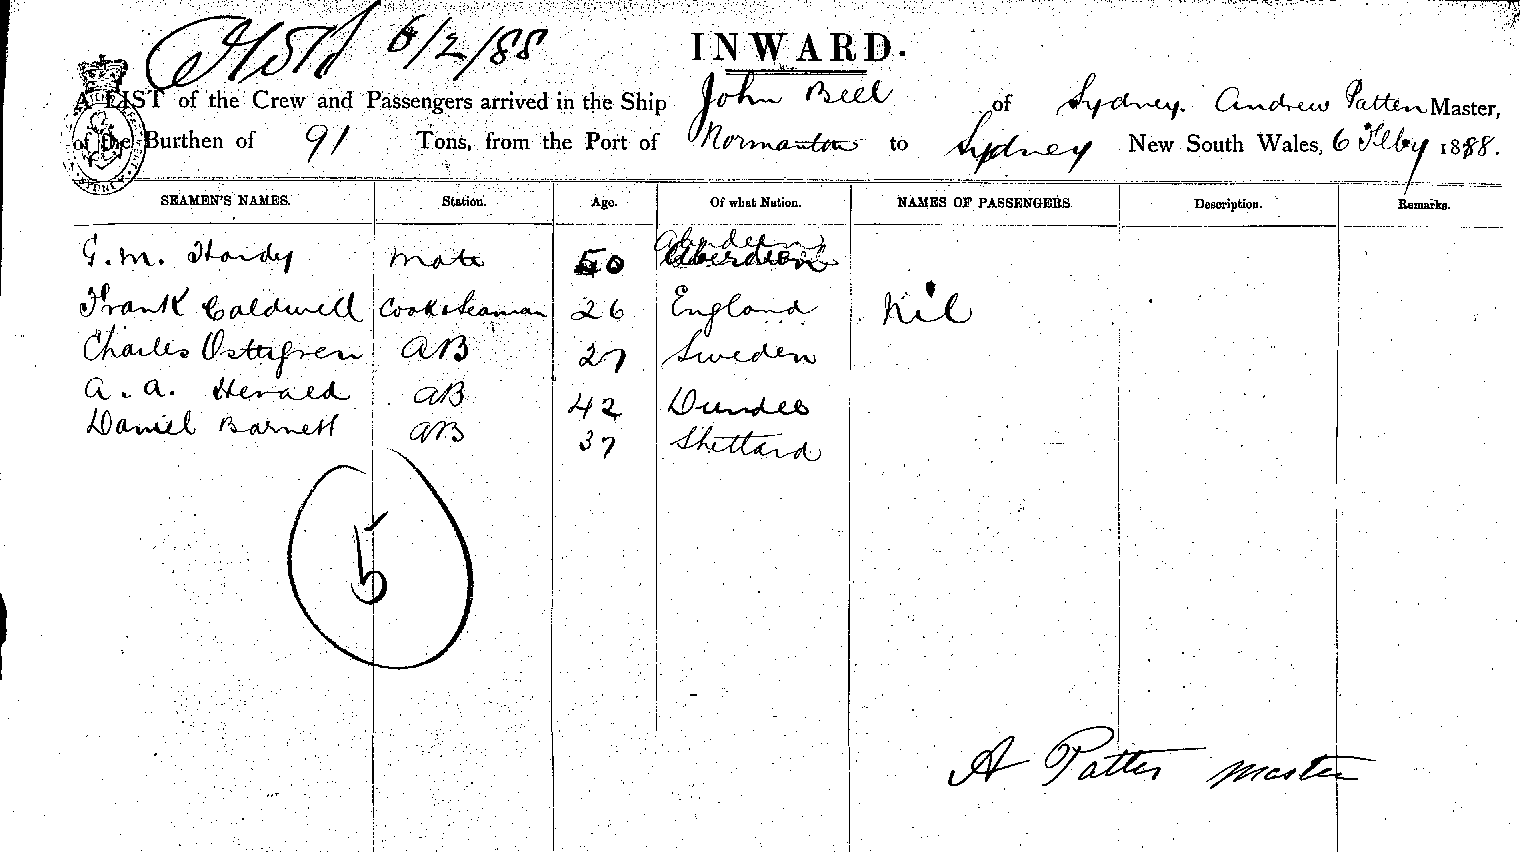 6/2/88
INWARD.
A LIST of the Crew and Passengers arrived in the Ship John Bell of Sydney. Andrew Patten Master,
of the Burthen of 91 Tons, from the Port of Normanton to Sydney New South Wales, 6 Feby 1888.
SEAMEN'S NAMES. Station. Age. Of what Nation. NAMES OF PASSENGERS. Description. Remarks.
G. M. Hardy Mate 50 Aberdeen
Frank Caldwell Cook & Seaman 26 England Nil
Charles Ostergren AB 27 Sweden
A. A. Herald AB 42 Dundee
Daniel Barnett AB 37 Shetland
5
A Patten Master